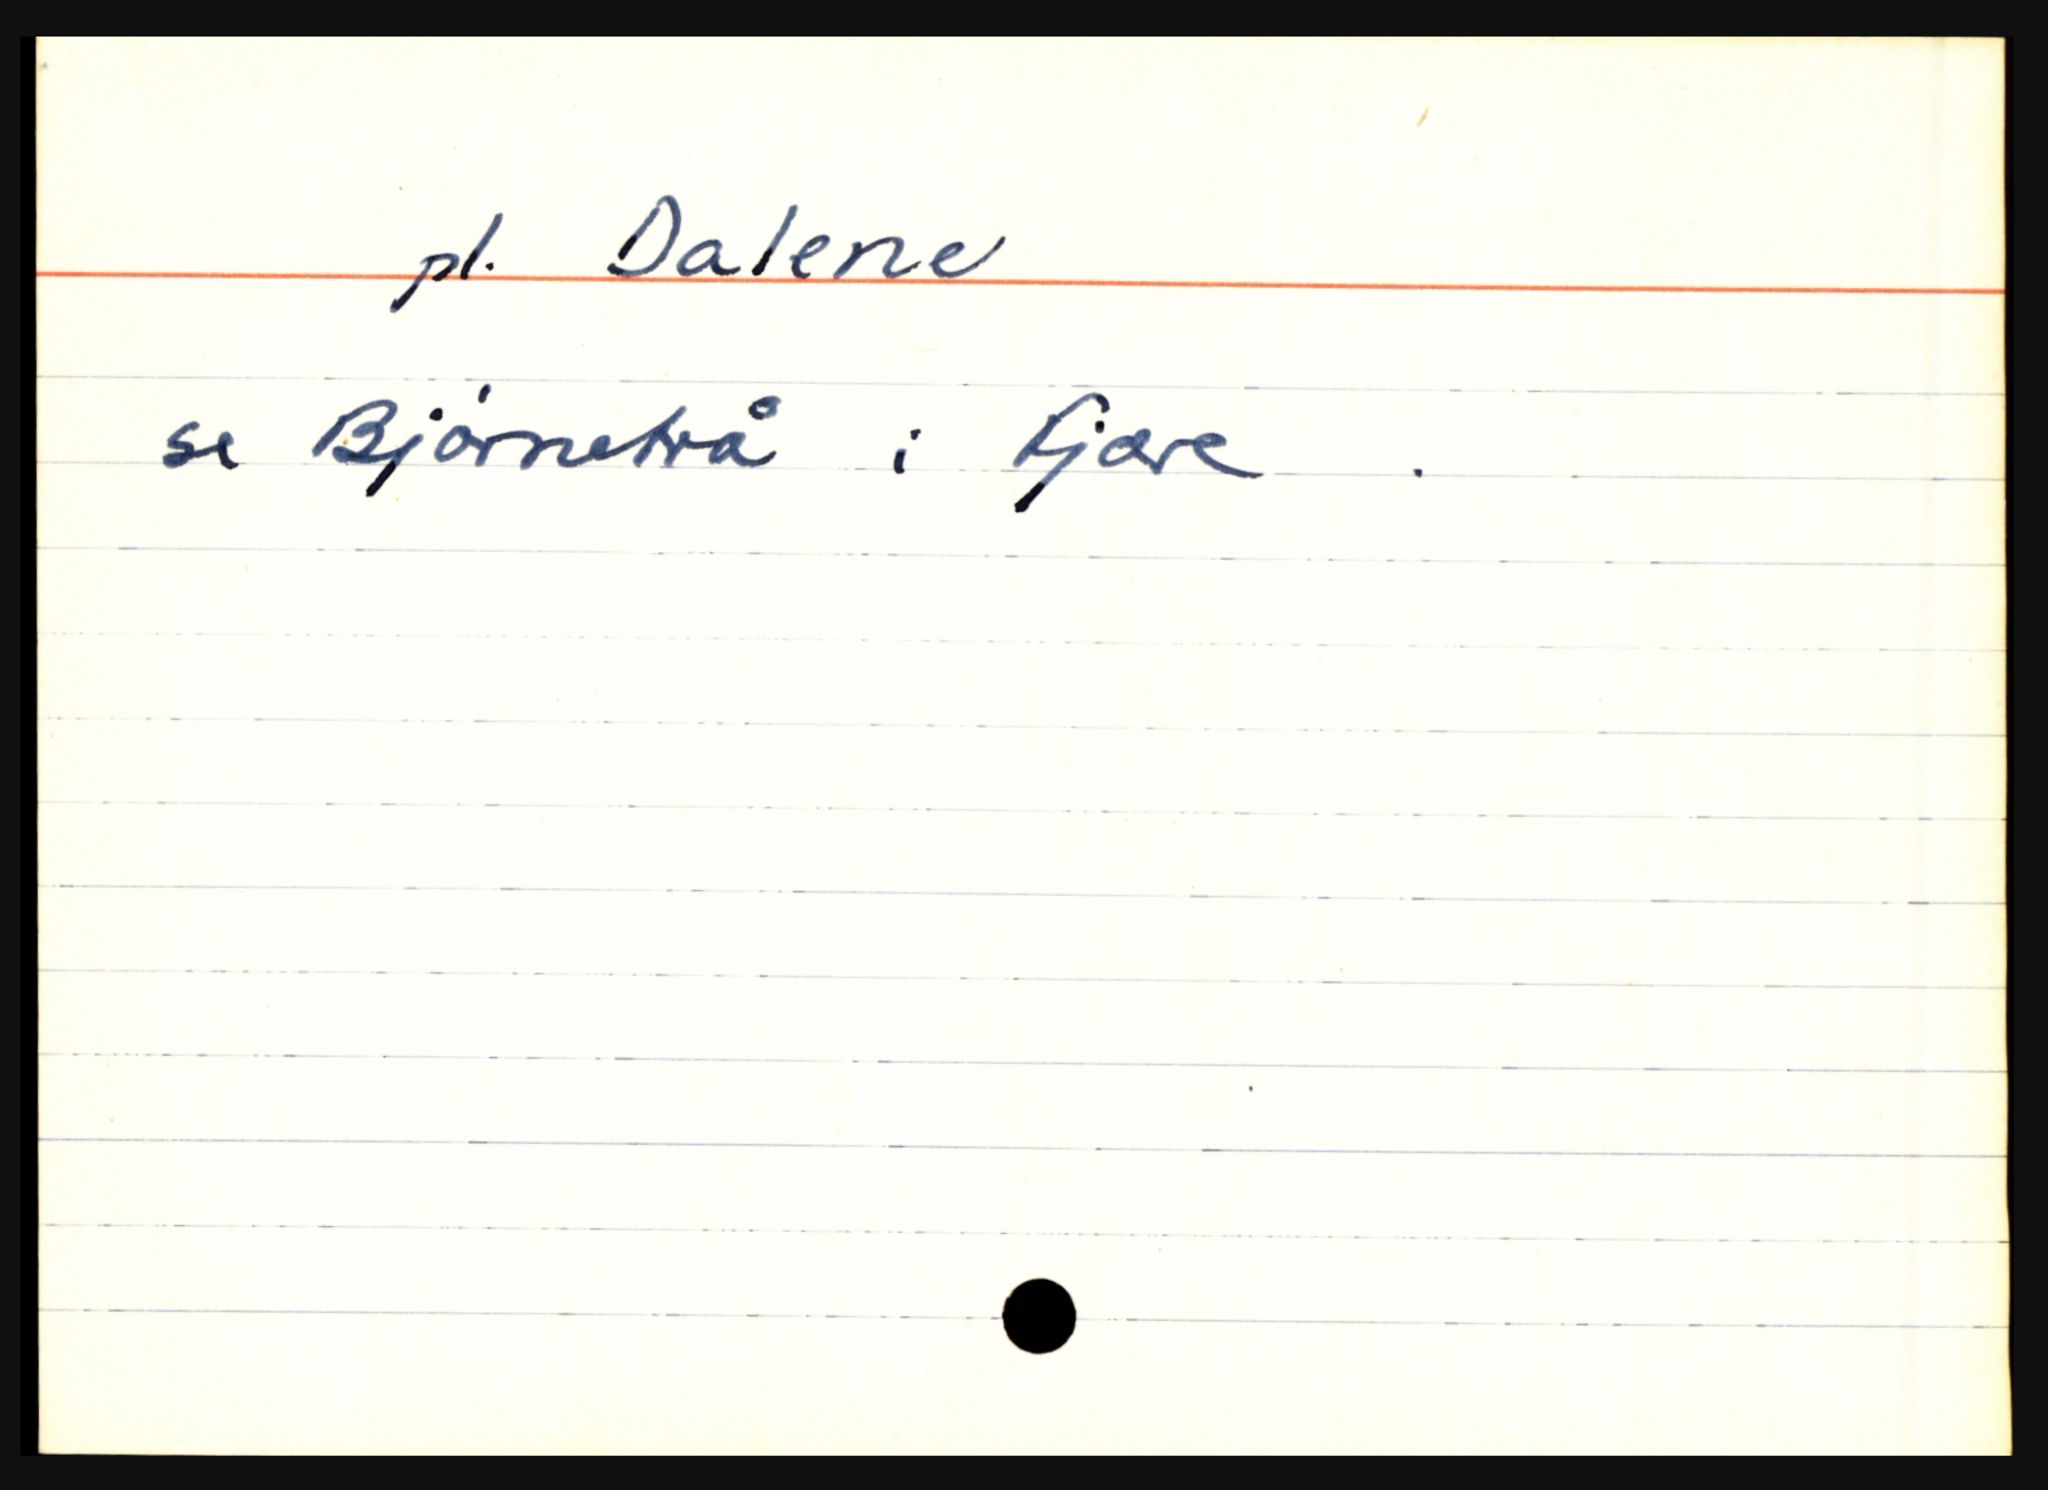 pl. Dalene
se Bjørnetrå i Fjære.